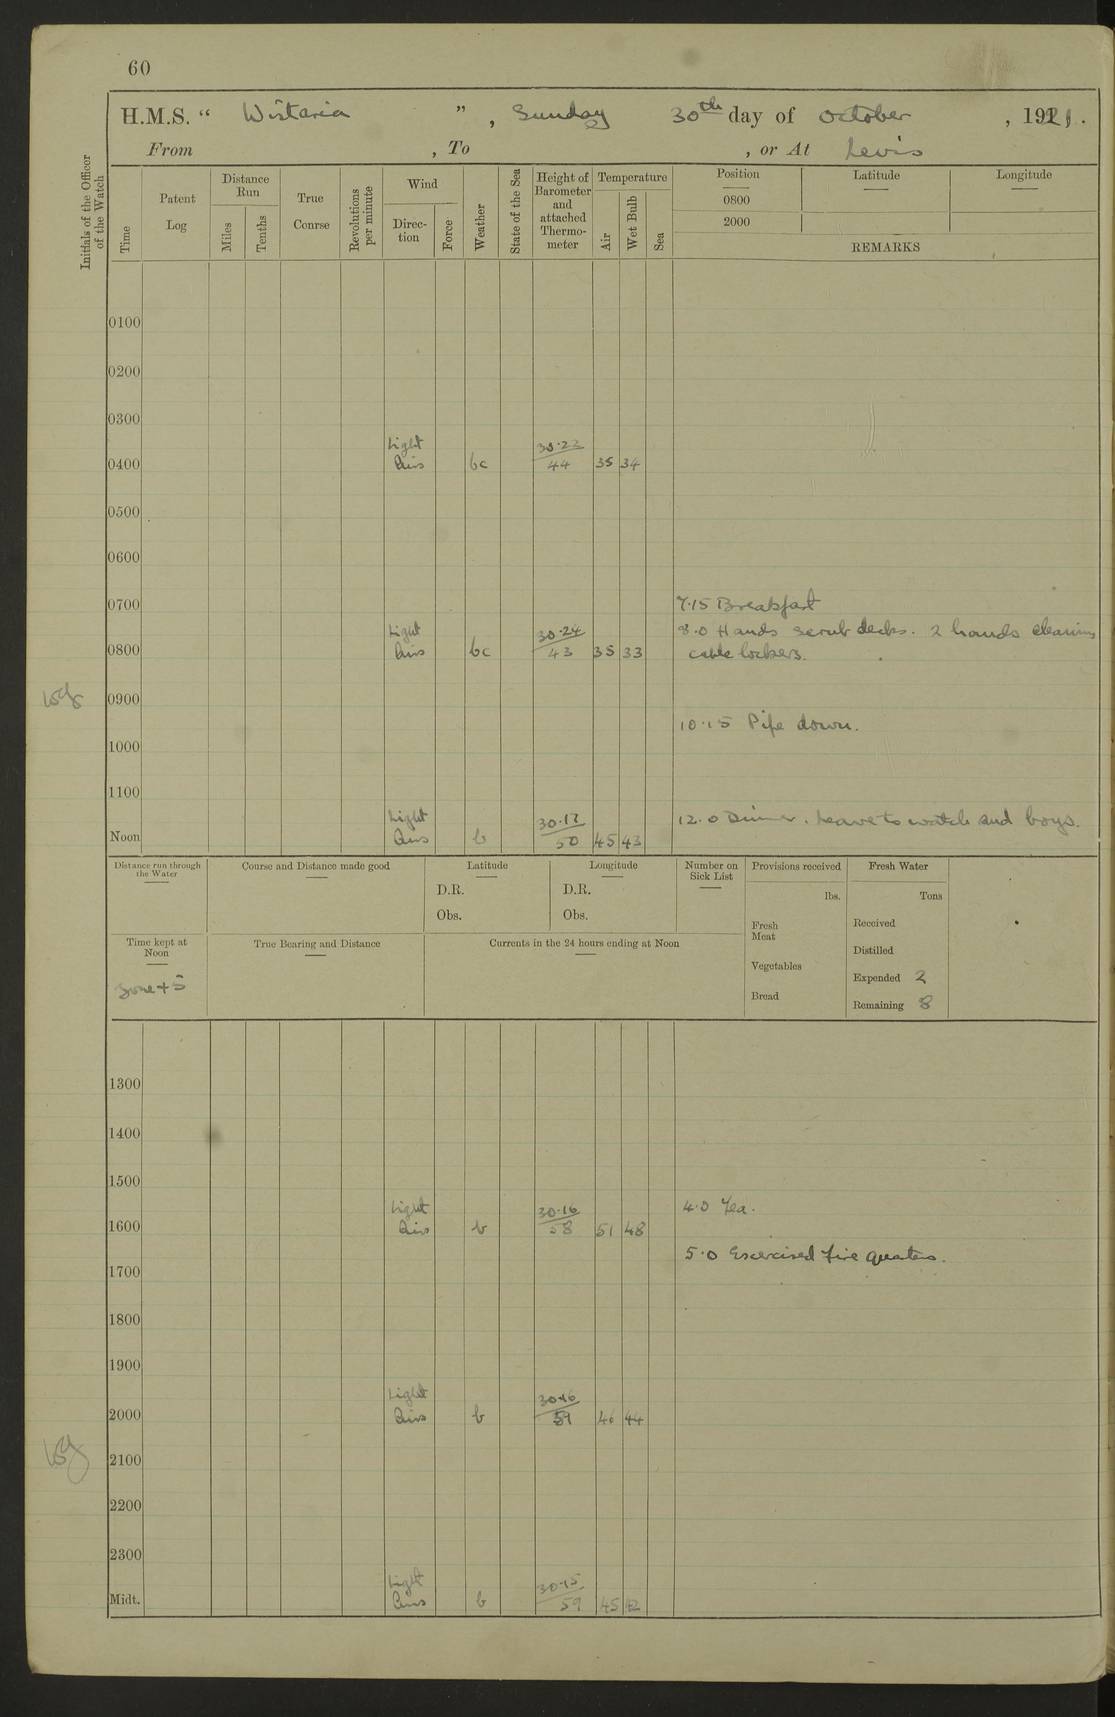 60
H.M.S. “ Wistaria ” , Sunday 30th day of October , 1921.
From , To , or At Levis
Initials of the Officer of the Watch
Time
Patent Log
Distance Run
Miles
Tenths
True Conrse
Revolutions per minute
Wind
Direc-tion
Force
Weather
State of the Sea
Height of Barometer and attached Thermo-meter
Temperature
Air
Wet Bulb
Sea
Position
Latitude
Longitude
0800
2000
REMARKS
0100
0200
0300
Light 30.22
0400 Airs bc 44 35 34
0500
0600
0700 7.15 Breakfast
Light 30.24 8.0 Hands scrub decks. 2 hands cleaning
0800 Airs bc 43 35 33 cable lockers.
0900
10.15 Pipe down.
1000
1100
Light 30.17 12.0 Dinner. Leave to watch and boys.
Noon Airs b 50 45 43
Distance run through the Water
Course and Distance made good
Latitude
D.R.
Obs.
Longitude
D.R.
Obs.
Number on Sick List
Provisions received
lbs.
Fresh Meat
Vegetables
Bread
Fresh Water
Tons
Received
Distilled
Expended 2
Remaining 8
Time kept at Noon
Zone + 5
True Bearing and Distance
Currents in the 24 hours ending at Noon
1300
1400
1500
Light 30.16 4.0 Tea.
1600 Airs b 58 51 48
5.0 Exercised fire quarters.
1700
1800
1900
Light 30.16
2000 Airs b 59 46 44
2100
2200
2300
Light 30.15
Midt. Airs b 59 45 42